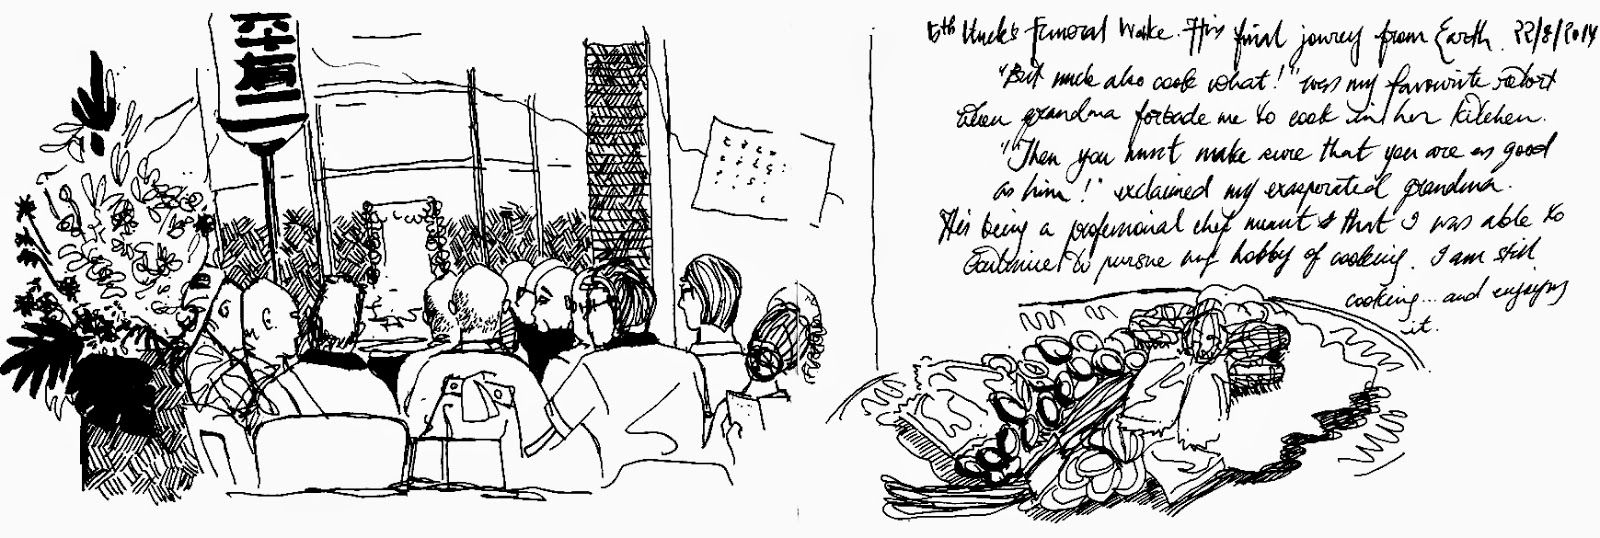 5th Uncle's Funeral Wake. His final jouney from Earth. 22/8/2014
"But uncle also cook what!" was my favourite retort
when grandma forbade me to cook in her kitchen.
"Then you must make sure that you are as good
as him!" exclaimed my exasperated grandma.
His being a professional chef meant that I was able to
continue to pursue my hobby of cooking. I am still
cooking... and enjoying
it.